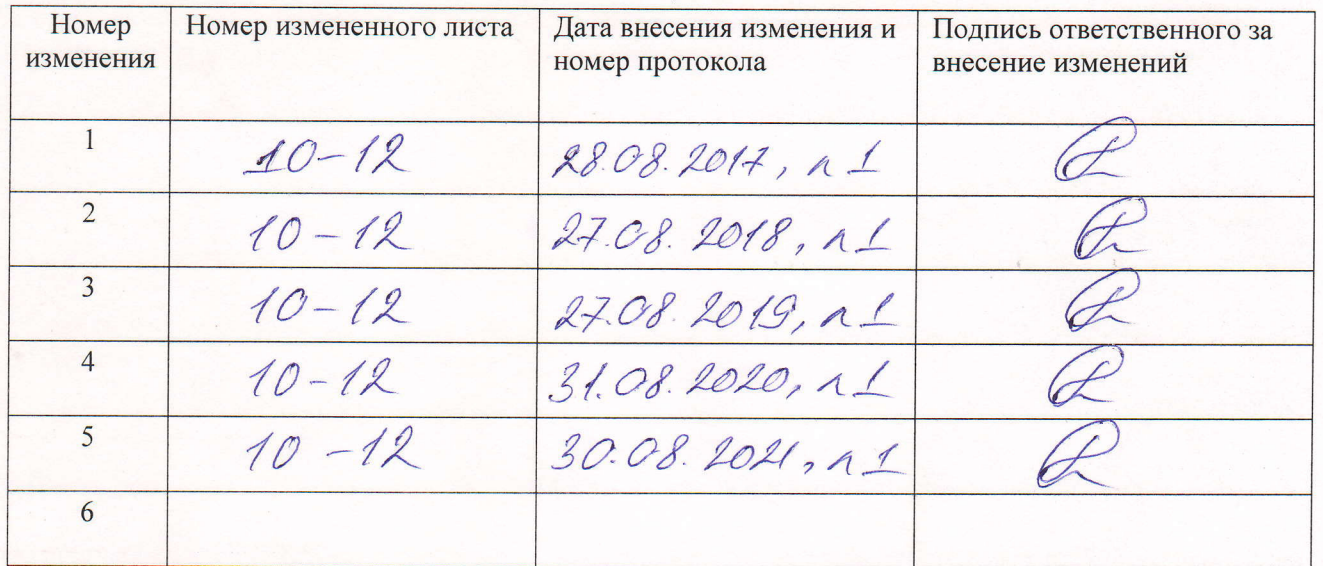 Номер изменения Номер измененного листа Дата внесения изменения и номер протокола Подпись ответственного за внесение изменений
1 10-12 28.08.2017, п 1
2 10-12 27.08.2018, п 1
3 10-12 27.08.2019, п 1
4 10-12 31.08.2020, п 1
5 10-12 30.08.2021, п 1
6